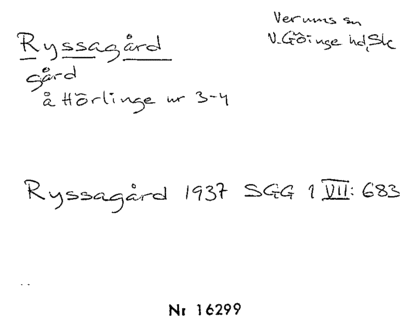 Ryssagård
Verums sn
V. Göinge hd, Sk
gård
å Hörlinge nr 3-4
Ryssagård 1937 SGG 1 VII: 683
Nr 16299